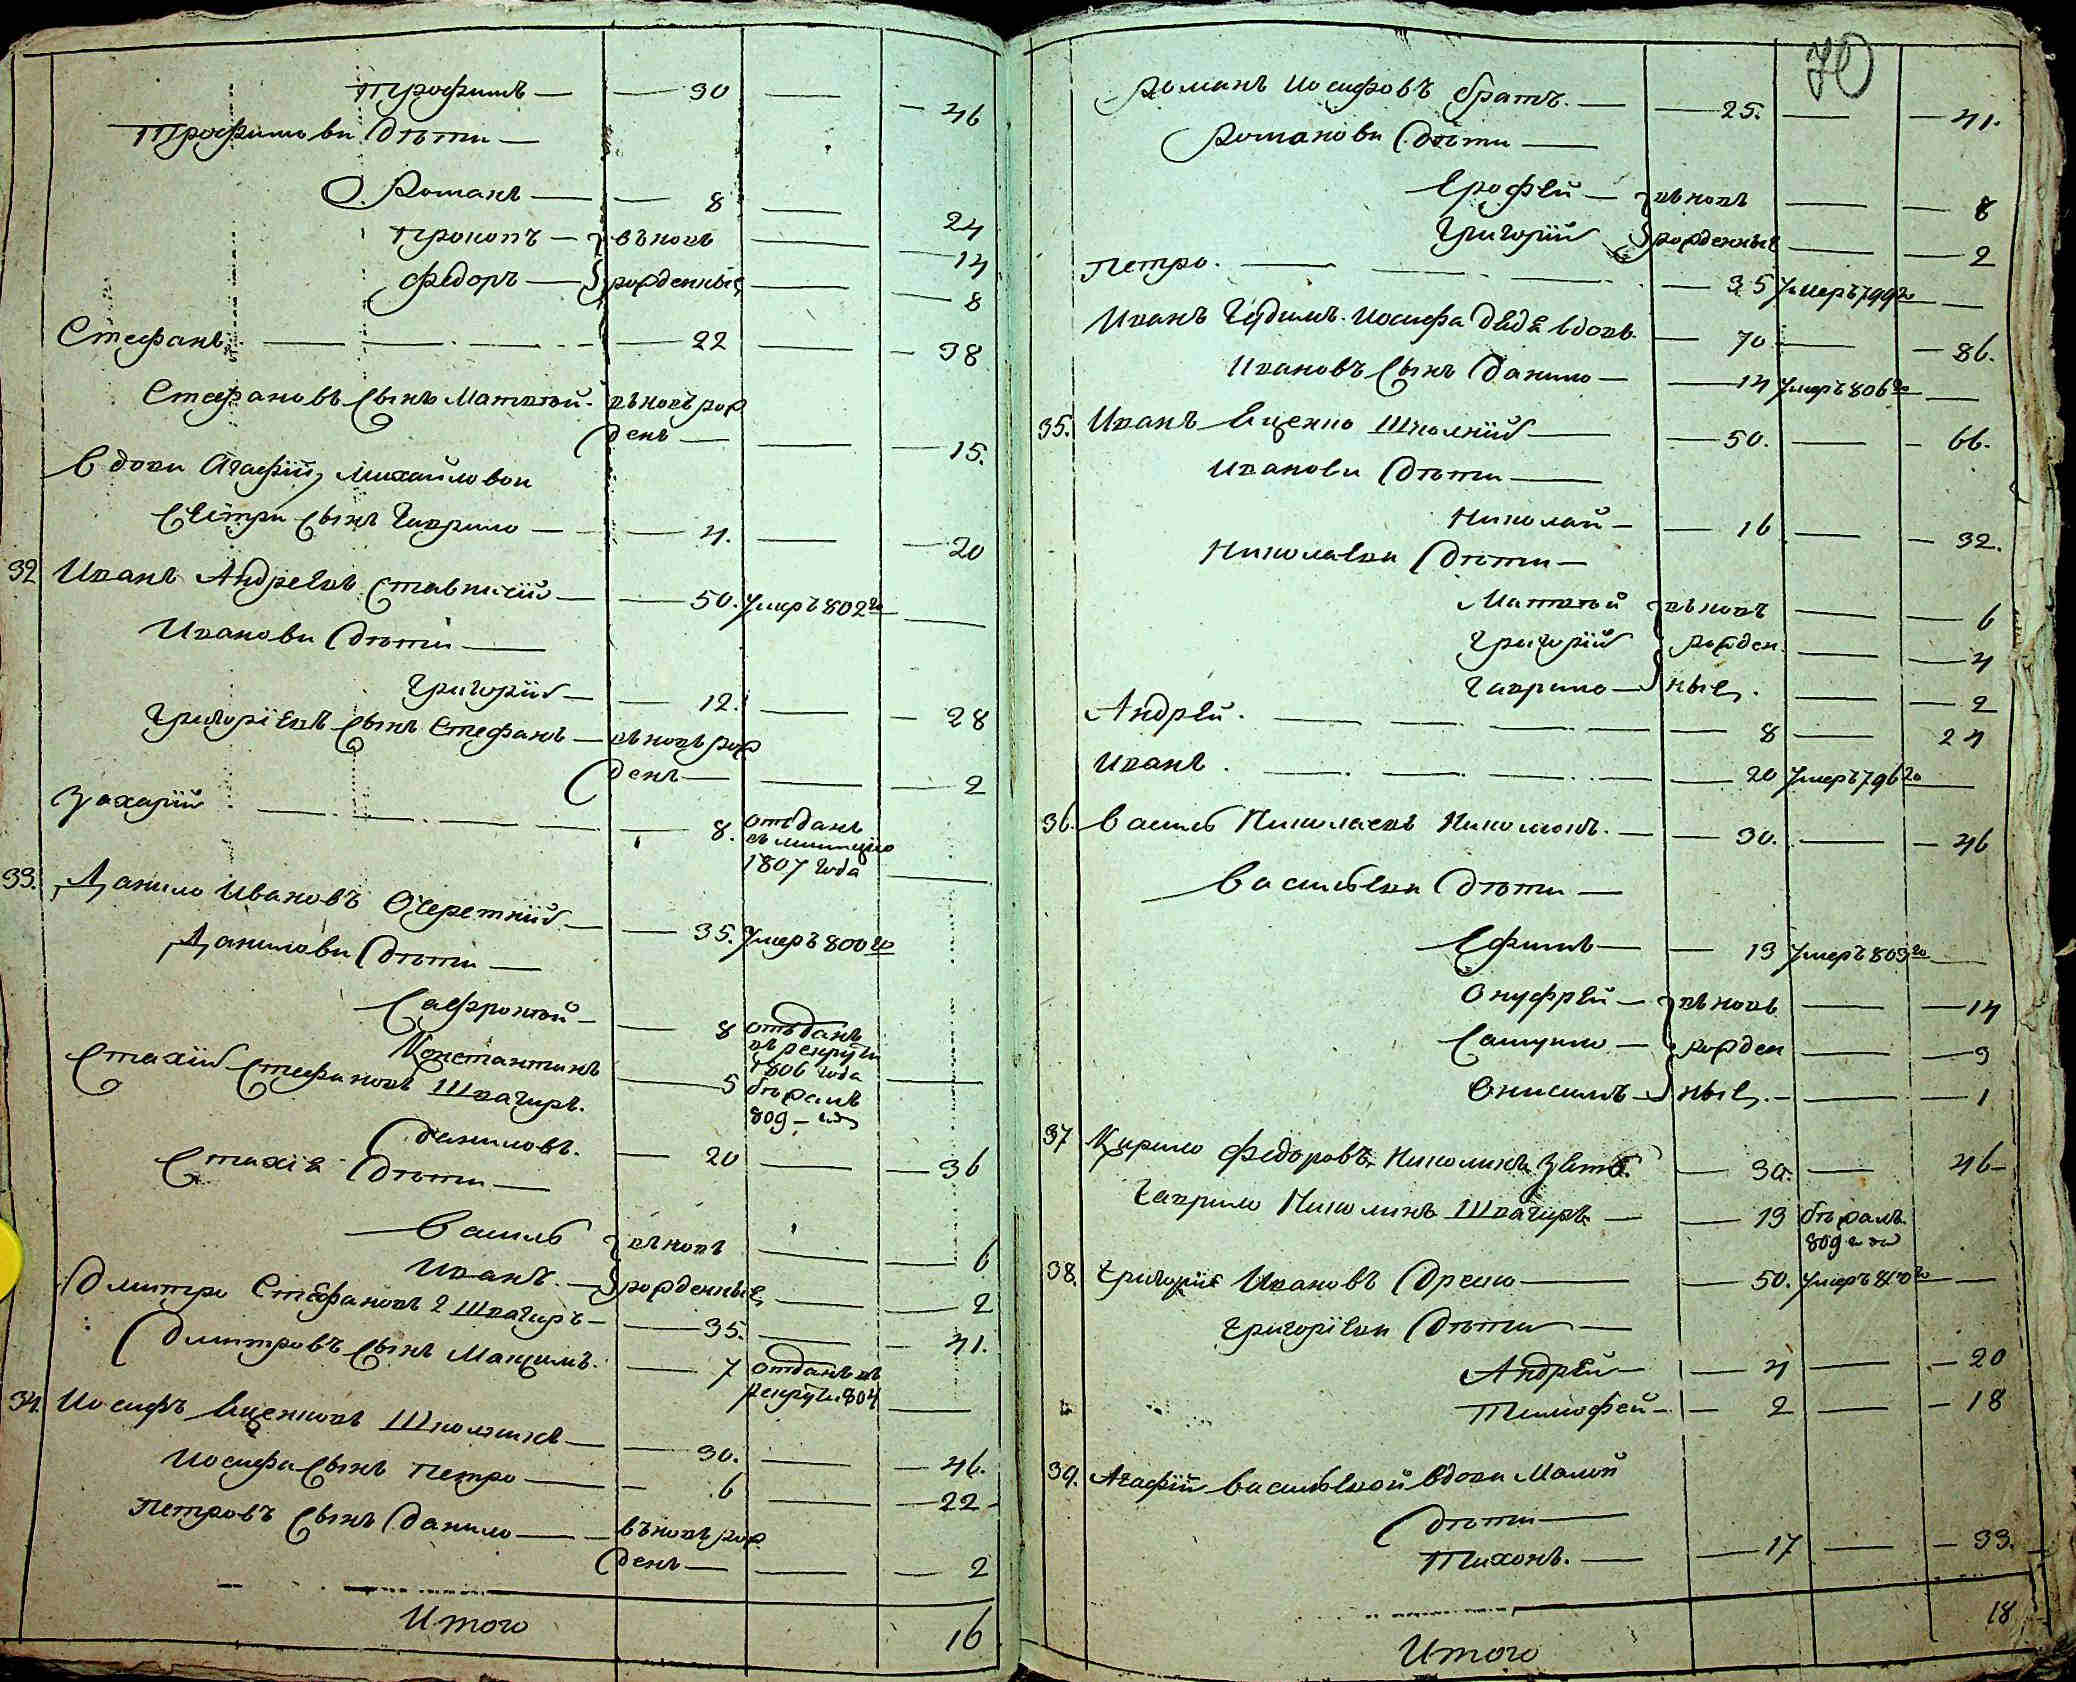 Трофимъ — 30 — 46
Трофимови дѣти —
Романъ — 8 — 24
Прокопъ — вновь — 14
Федоръ — рожденные — 8
Стефанъ — 22 — 38
Стефановъ сынъ Матвей вновь рож
денъ — 15.
Вдови Агафіи Михайловои
сестри сынъ Гаврило — 4. — 20
32 Иванъ Андреевъ Ставицкій — 50. умеръ 802го —
Иванови дѣти —
Григорій — 12. — 28
Григоріевъ сынъ Стефанъ — вновь рож
денъ — 2
Захарій — 8. отданъ
въ милицію
1807 года —
33. Данило Ивановъ Очеретній — 35. умеръ 800го
Данилови дѣти —
Сафроней — 8 отъданъ
въ рекруты
1806 года —
Константинъ — 5 бѣжалъ
809 - года
Стахій Стефановъ Швагиръ
Даниловъ. — 20 — 36
Стахія дѣти —
Василь вновь — 6
Иванъ. — рожденные — 2
Дмитро Стефановъ 2 Швагиръ — 35. — 41.
Дмитровъ сынъ Максимъ. — 7 отданъ въ
рекруты 804 —
34. Иосифъ Яценковъ Школникъ — 30. — 46.
Иосифа сынъ Петро — 6 — 22
Петровъ сынъ Данило — вновь рож
денъ — 2
Итого 16
70
Романъ Иосифовъ братъ. — 25. — 41.
Романови дѣти —
Ерофей — вновь — 8
Григорій рожденные — 2
Петро. — 35 умеръ 799го —
Иванъ Гудимъ. Иосифа дядя вдовъ. — 70 — 86.
Ивановъ сынъ Данило — 14 умеръ 806го —
35. Иванъ Яценко Школній — 50. — 66.
Иванови дѣти —
Николай — 16 — 32.
Николаеви дѣти —
Матвей вновь — 6
Григорій рожден — 4
Гаврило — ные. — 2
Андрей. — 8 — 24
Иванъ. — 20 умеръ 796го —
36. Василь Николаевъ Николинъ. — 30. — 46
Васильеви дѣти —
Ефимъ — 13 умеръ 803го —
Онуфрей — вновь — 14
Самуило — рожден — 3
Онисимъ — ные. — 1
37 Кирило Федоровъ Николинъ зять. — 30. — 46
Гаврило Николинъ Швагиръ — 13 бѣжалъ
809 года
38. Григорій Ивановъ — 50. умеръ —
Григоріеви дѣти —
Андрей — 4 — 20
Тимофей — 2 — 18
39. Агафіи Васильевой вдови Малой
дѣти —
Тихонъ. — 17 — 33.
Итого 18